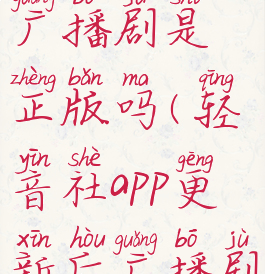 guǎng bō jù shì
广播剧是
zhèng bǎn ma qīng
正版吗(轻
yīn shè gēng
音社app更
xīn hòu guǎng bō jù
新后广播剧